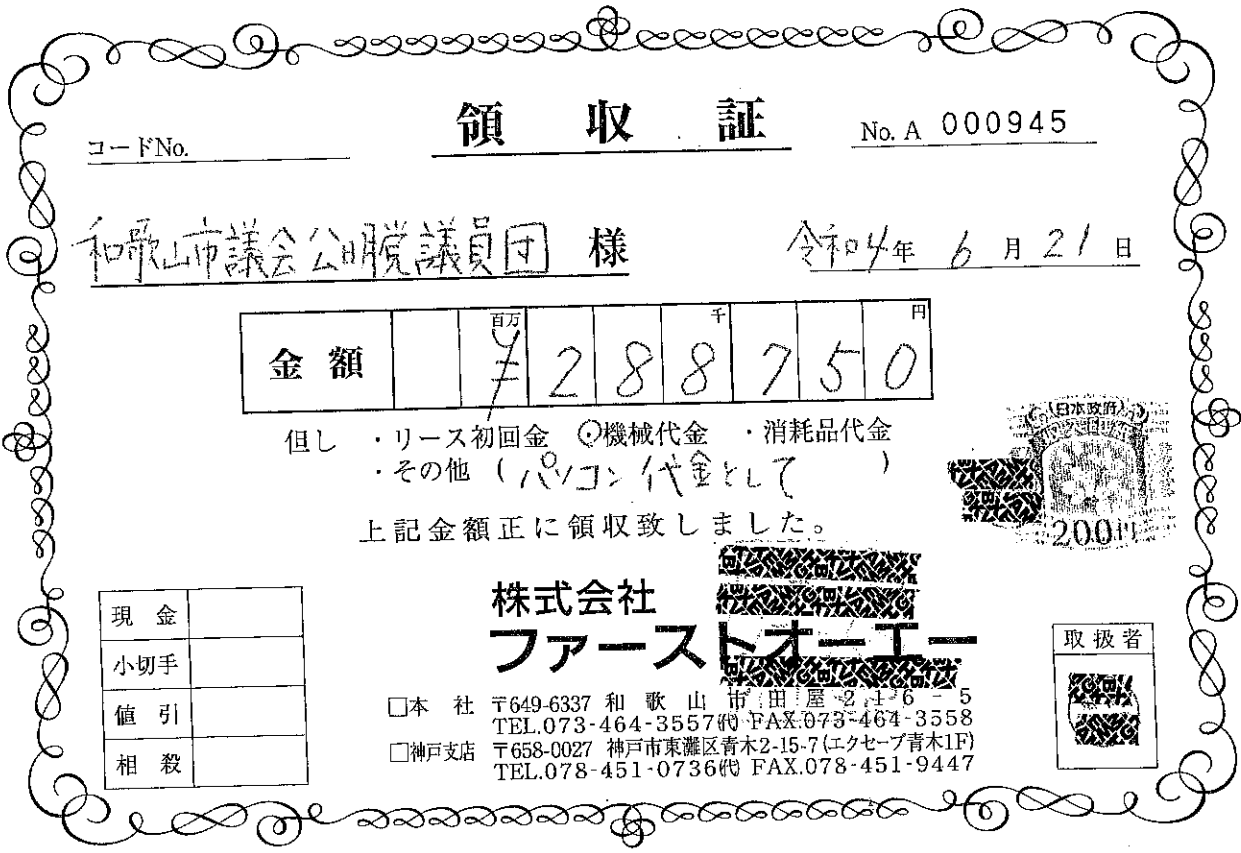 領収証
コードNo.
No. A 000945
和歌山市議会公明党議員団 様
令和4年 6月21日
金額 百万 千 円
¥288750
但し ・リース初回金 ⊙機械代金 ・消耗品代金
・その他 (パソコン代金として)
上記金額正に領収致しました。
(日本政府)
200円
株式会社
ファーストオーエー
□本社 〒649-6337 和歌山市田屋216-5
TEL.073-464-3557㈹ FAX.073-464-3558
□神戸支店 〒658-0027 神戸市東灘区青木2-15-7(エクセーブ青木1F)
TEL.078-451-0736㈹ FAX.078-451-9447
現金
小切手
値引
相殺
取扱者